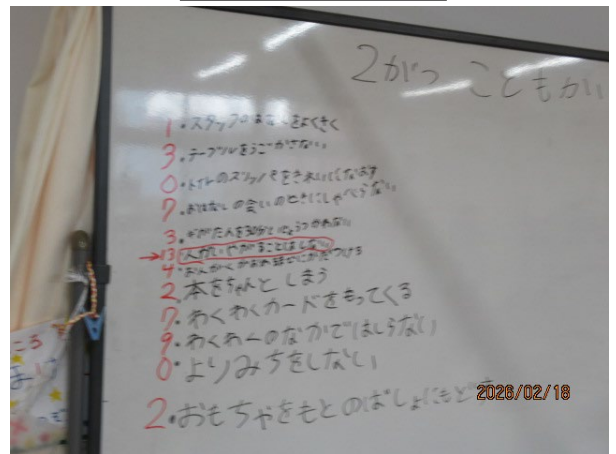 2がつ こどもかい
1・スタッフのはなしをよくきく
3・テーブルをうごかさない
0・トイレのスリッパをきれいにならす
7・おはなしの会いのときにしゃべらない
3・を30分いじょうつかわない
→13・人がいやがることはしない
4・おんがくがおわる
2・本をちゃんとしまう
7・わくわくカードをもってくる
9・わくわくのなかではしらない
0・よりみちをしない
2・おもちゃをもとのばしょにもどす
ころ
2026/02/18